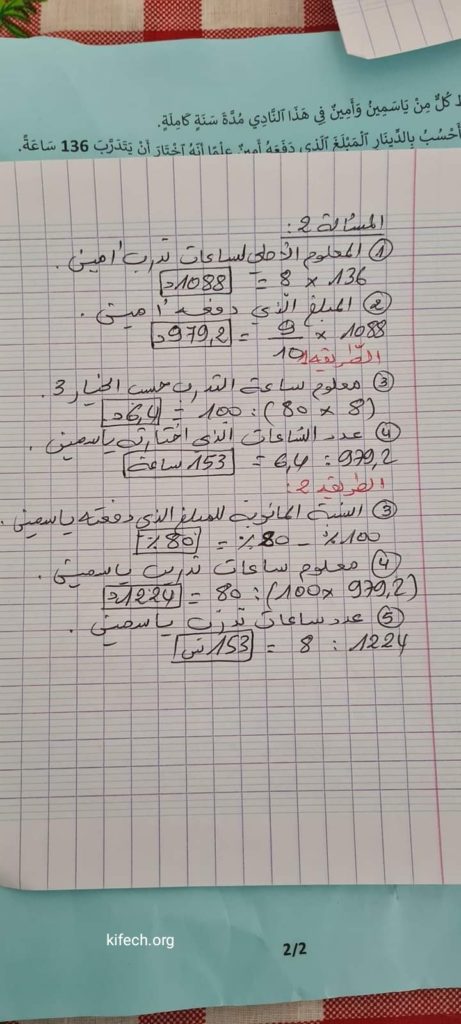 كُلٌّ مِنْ يَاسَمِينُ وَأَمِينٌ فِي هَذَا النَّادِي مُدَّةَ سَنَةٍ كَامِلَةٍ.
أَحْسُبُ بِالدِّينَارِ الْمَبْلَغَ الَّذِي دَفَعَهُ أَمِينٌ عِلْمًا أَنَّهُ اخْتَارَ أَنْ يَتَدَرَّبَ 136 سَاعَةً.
المسألة 2:
① المعلوم الأصلي لساعات تدرب أمين.
136 × 8 = 1088د
② المبلغ الّذي دفعه أمين.
1088 × 9/10 = 979,2د
الطّريقة 1
③ معلوم ساعة التدرب حسب الخيار 3.
(8 × 80) : 100 = 6,4د
④ عدد السّاعات الذي اختارته ياسمين.
979,2 : 6,4 = 153 ساعة
الطريقة 2:
③ النسبة المائوية للمبلغ الذي دفعته ياسمين.
100٪ - 20٪ = 80٪
④ معلوم ساعات تدرب ياسمين.
(979,2 ×100) : 80 = 1224د
⑤ عدد ساعات تدرّب ياسمين.
1224 : 8 = 153 س
kifech.org
2/2